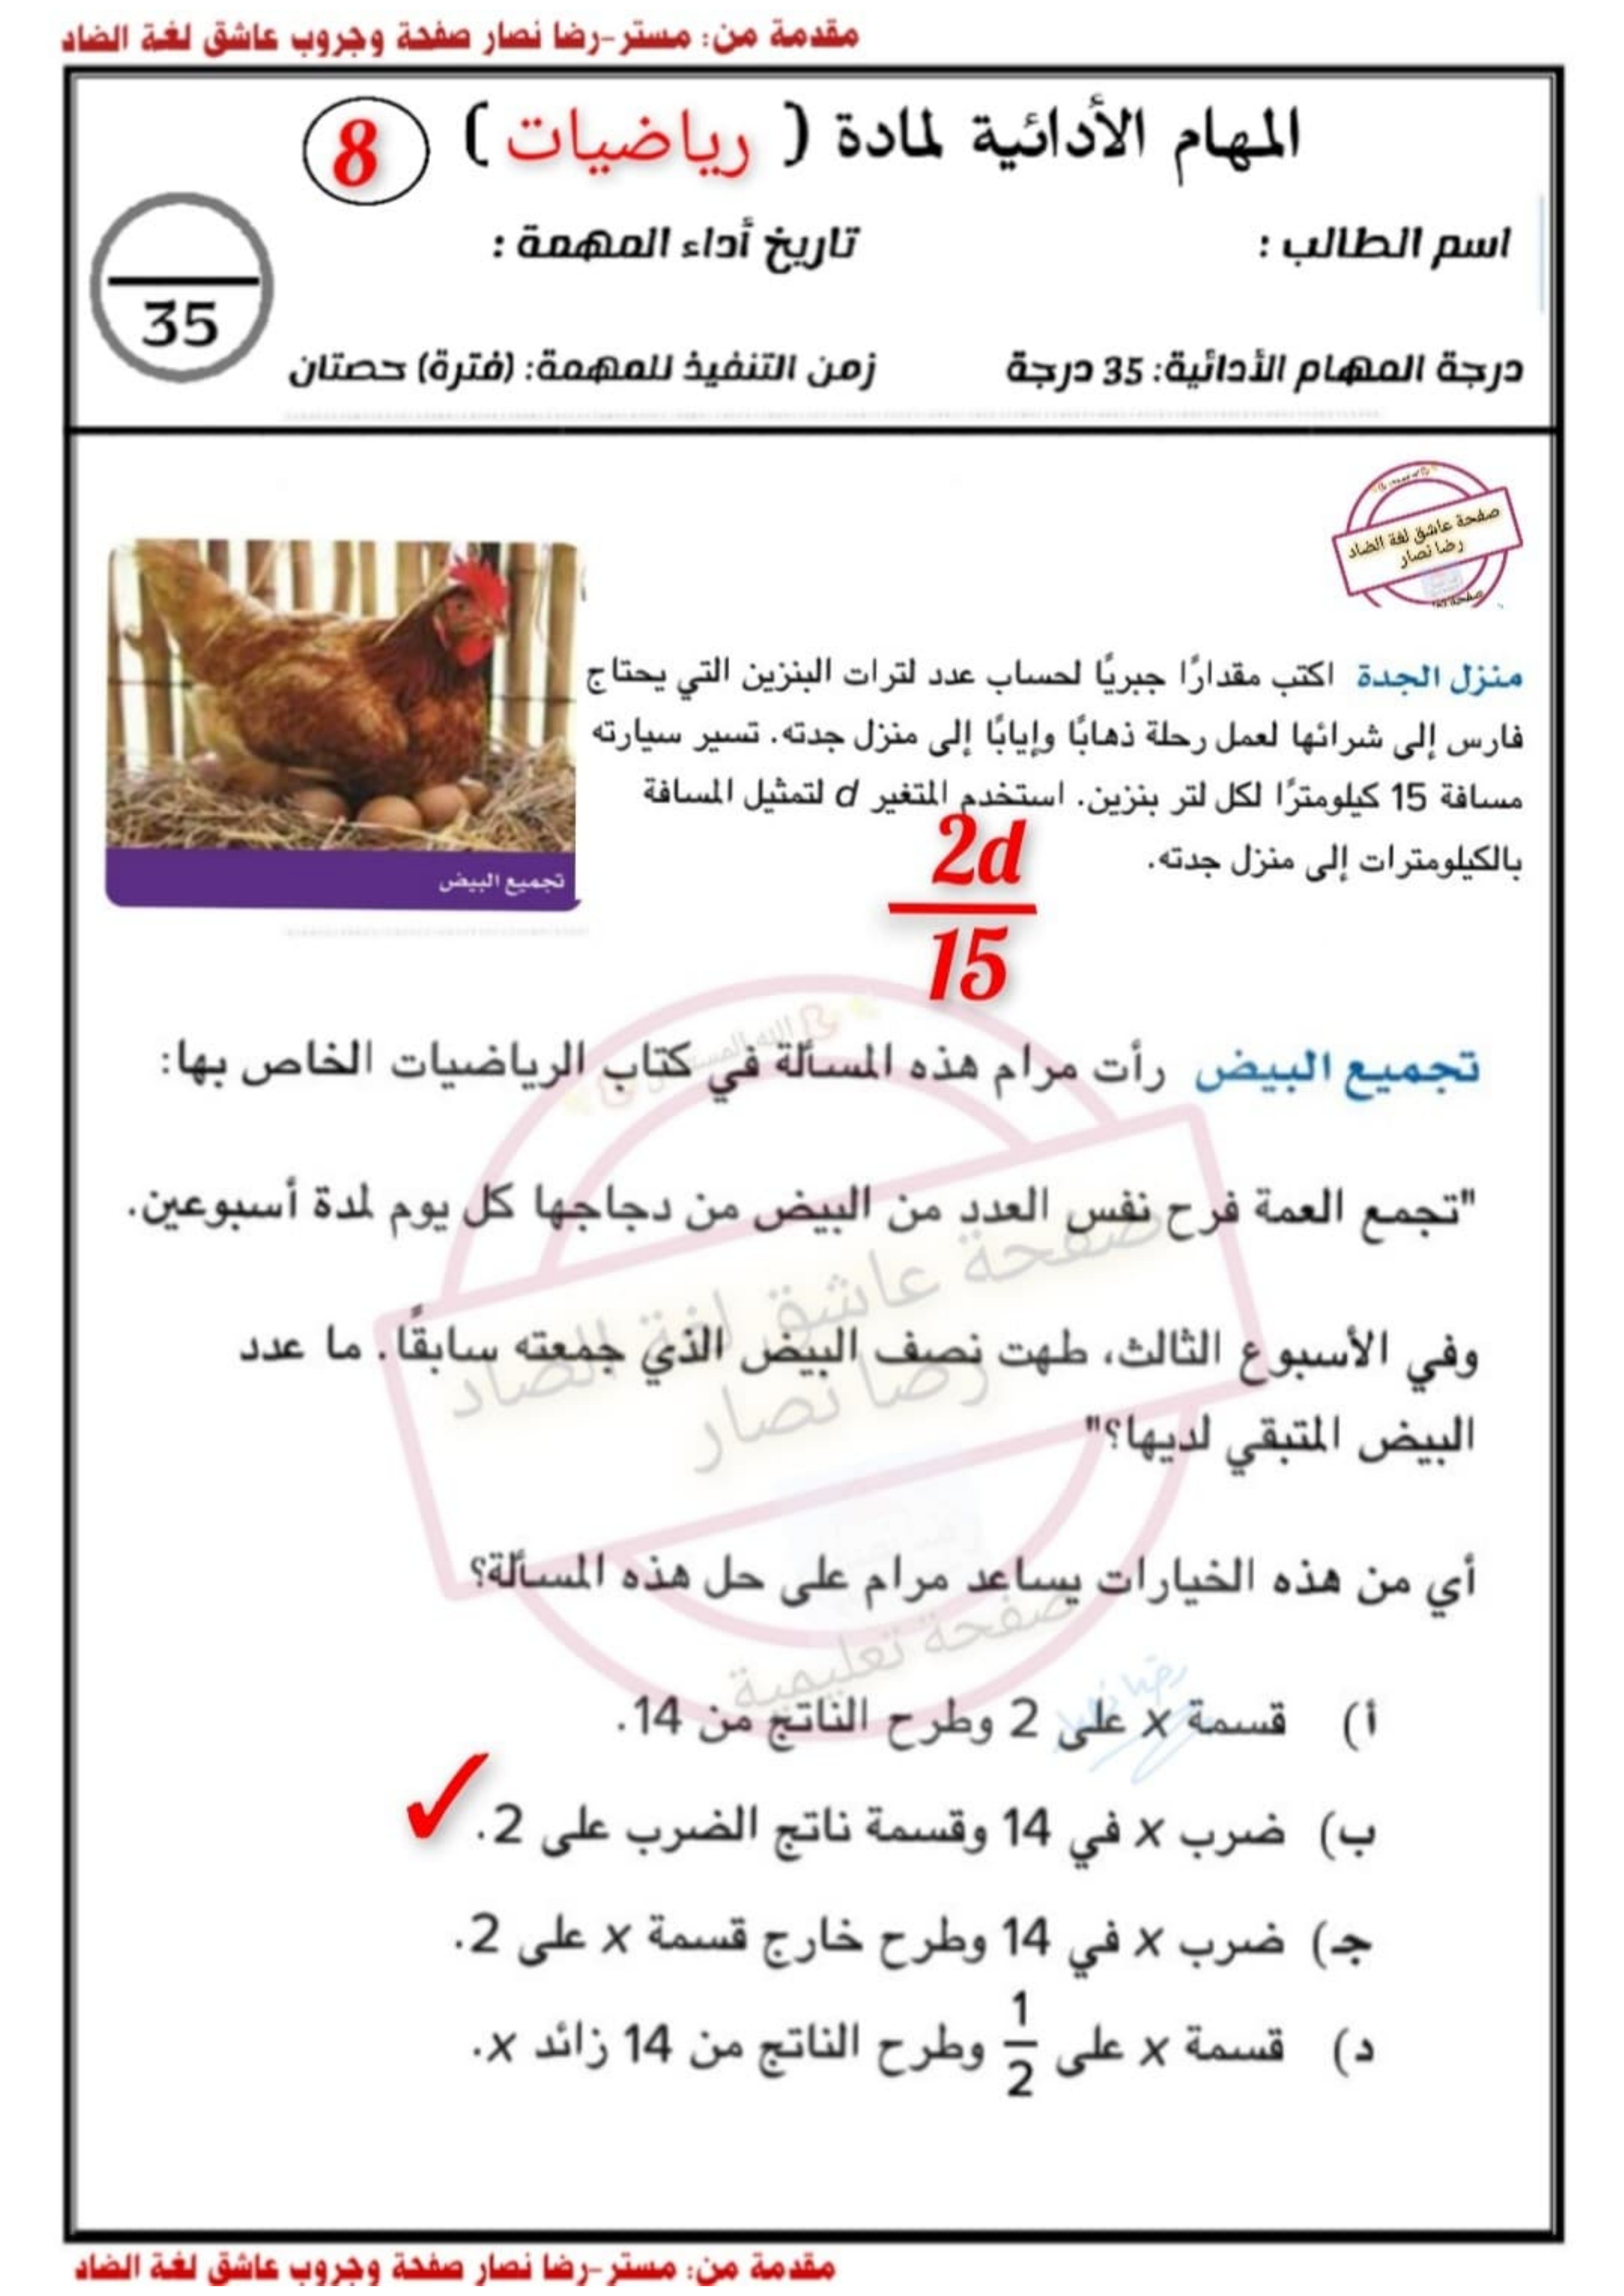 مقدمة من: مستر-رضا نصار صفحة وجروب عاشق لغة الضاد
المهام الأدائية لمادة ( رياضيات ) 8
اسم الطالب : تاريخ أداء المهمة :
35
درجة المهام الأدائية: 35 درجة زمن التنفيذ للمهمة: (فترة) حصتان
صفحة عاشق لغة الضاد
رضا نصار
منزل الجدة اكتب مقدارًا جبريًا لحساب عدد لترات البنزين التي يحتاج
فارس إلى شرائها لعمل رحلة ذهابًا وإيابًا إلى منزل جدته. تسير سيارته
مسافة 15 كيلومترًا لكل لتر بنزين. استخدم المتغير d لتمثيل المسافة
بالكيلومترات إلى منزل جدته.
2d
15
تجميع البيض
تجميع البيض رأت مرام هذه المسألة في كتاب الرياضيات الخاص بها:
"تجمع العمة فرح نفس العدد من البيض من دجاجها كل يوم لمدة أسبوعين.
وفي الأسبوع الثالث، طهت نصف البيض الذي جمعته سابقًا. ما عدد
البيض المتبقي لديها؟"
صفحة عاشق لغة الضاد
رضا نصار
صفحة تعليمية
أي من هذه الخيارات يساعد مرام على حل هذه المسألة؟
أ) قسمة x على 2 وطرح الناتج من 14.
ب) ضرب x في 14 وقسمة ناتج الضرب على 2.
جـ) ضرب x في 14 وطرح خارج قسمة x على 2.
د) قسمة x على 1/2 وطرح الناتج من 14 زائد x.
مقدمة من: مستر-رضا نصار صفحة وجروب عاشق لغة الضاد